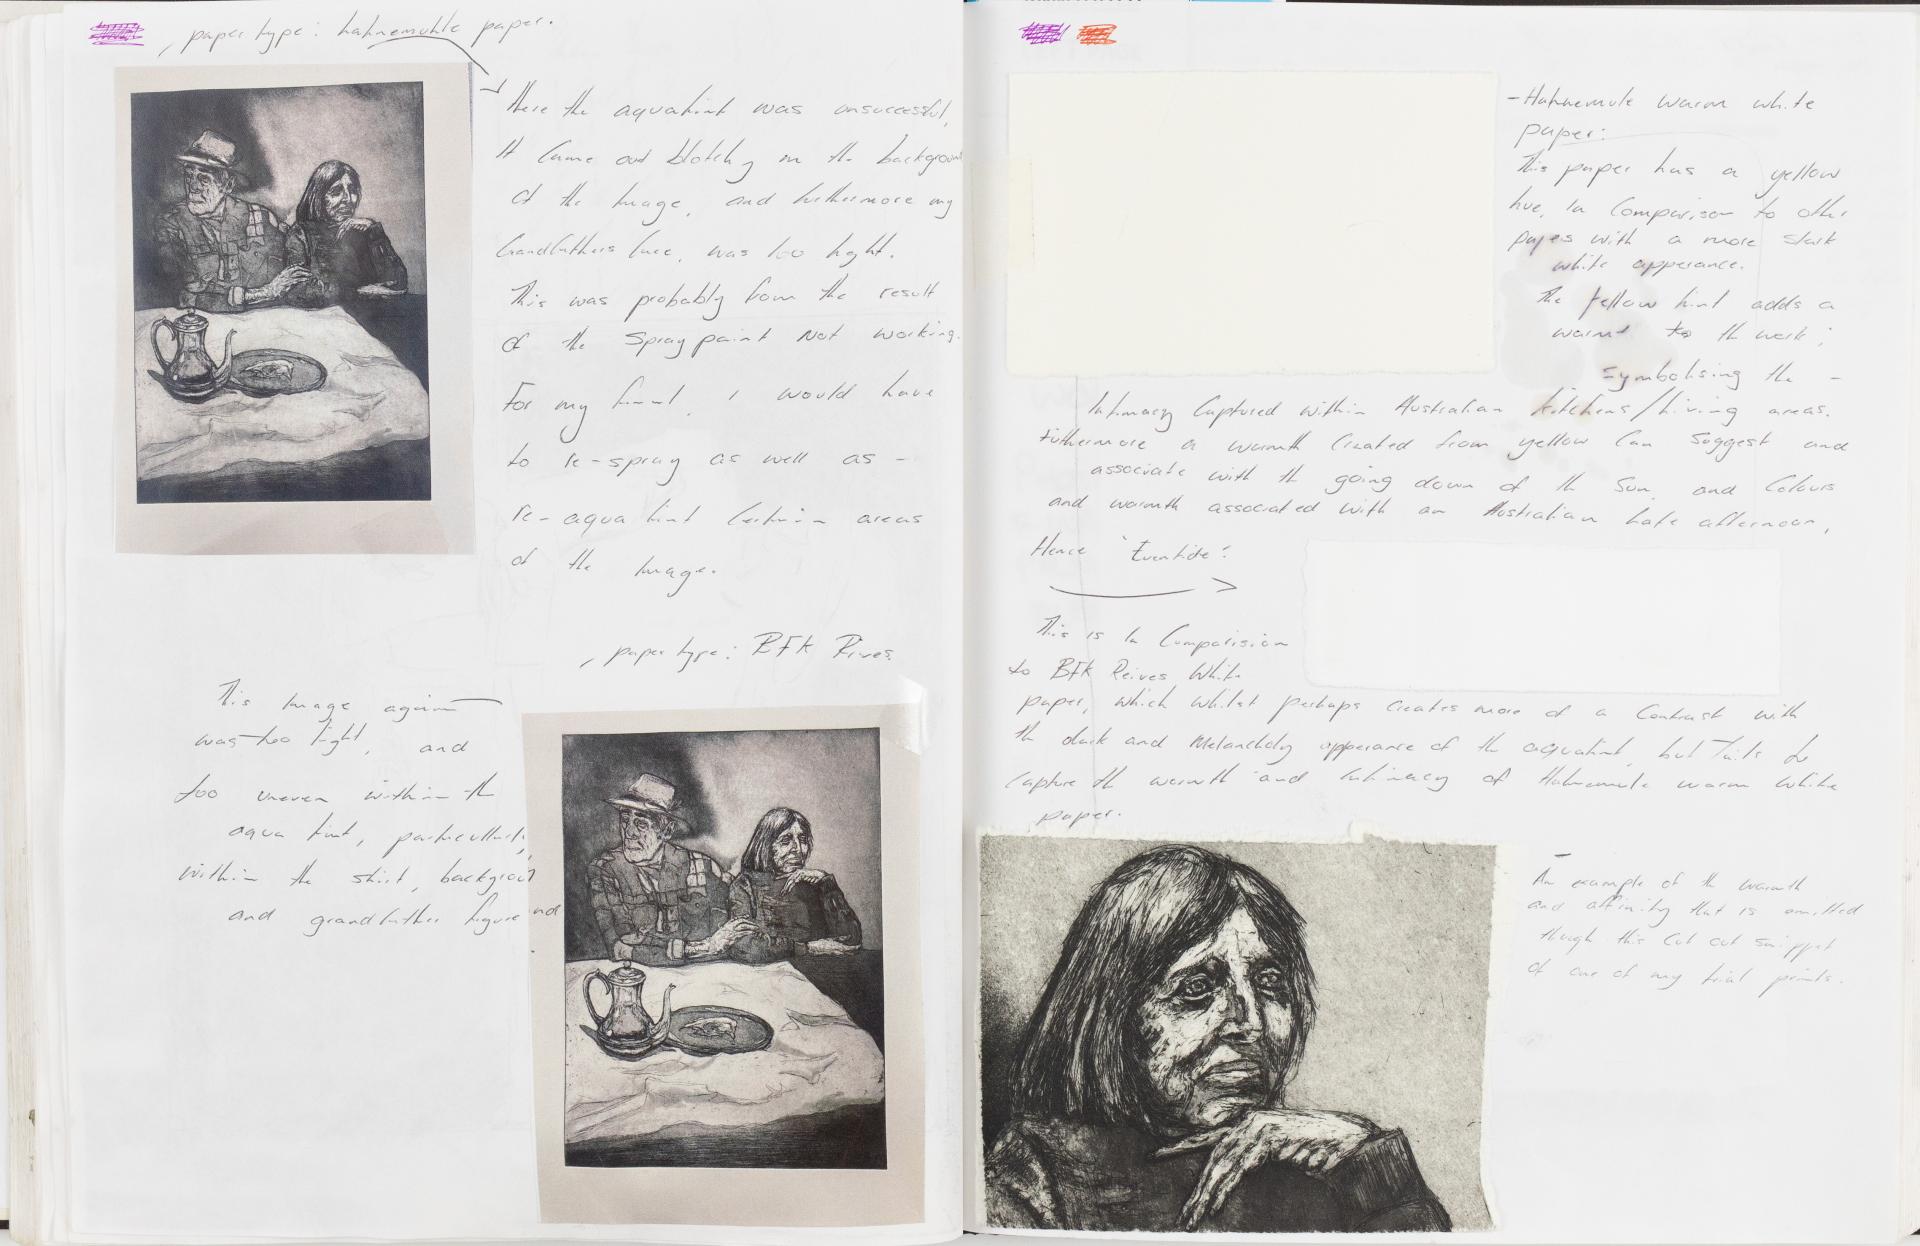 , paper type: hahnemuhle paper.
Here the aquatint was unsuccessful,
It came out blotchy in the background
of the Image, and furthermore my
Grandfathers face, was too light.
This was probably from the result
of the Spray paint not working.
For my final, I would have
to re-spray as well as -
re-aqua tint certain areas
of the Image.
, paper type: BFK Rives.
This Image again
was too light, and
too uneven within the
aqua tint, particularly,
within the shirt, background
and grandfather figure
- Hahnemule warm white
paper:
This paper has a yellow
hue, In Comparison to other
pages with a more stark
white apperance.
The yellow tint adds a
warmt to th work;
symbolising the -
Intimacy Captured within Australian kitchens/living areas.
Futhermore a warmth created from yellow Can Suggest and
associate with th going down of th Sun, and Colours
and warmth associated with an Australian late afternoon,
Hence 'Eventide'.
This is In Comparision
to BFK Reives White
paper, which whilst perhaps creates more of a Contrast with
th dark and Melancholy apperance of th aquatint, but fails to
capture th warmth and Intimacy of Hahnemule warm white
paper.
An example of th warmth
and affinity that is omitted
though this Cut out snippet
of one of my trial prints.